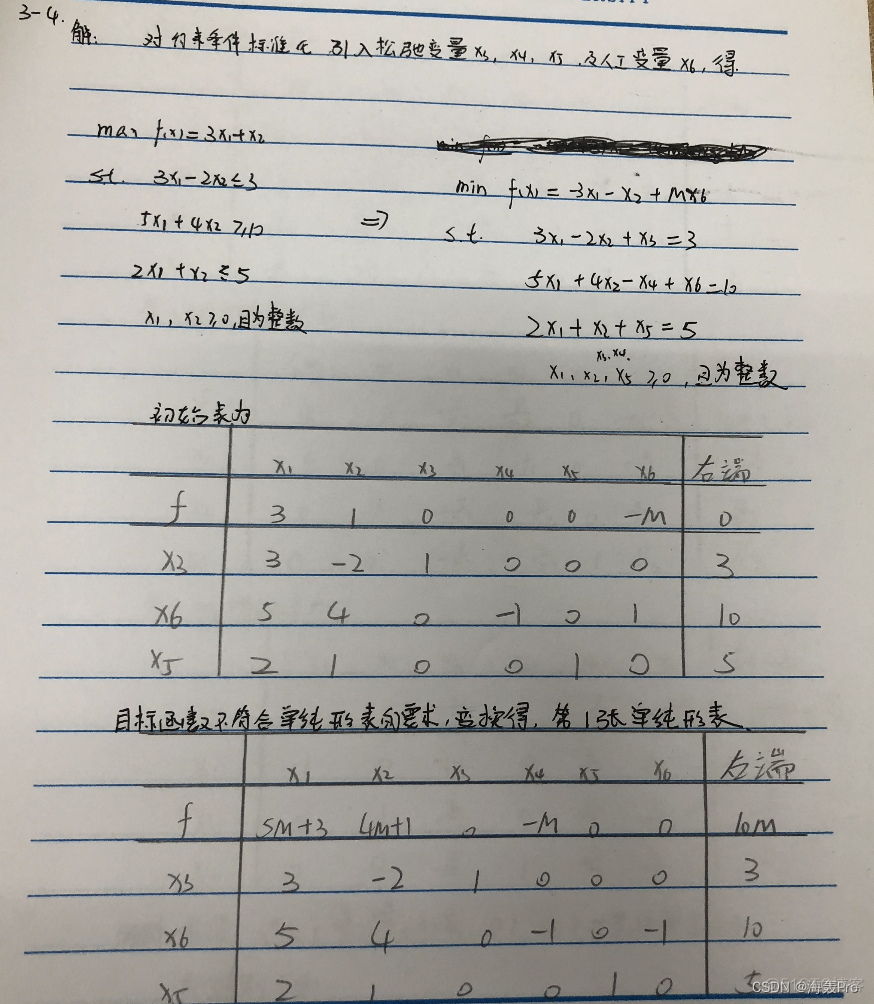 3-4.
解: 对约束条件标准化 引入松弛变量 x3, x4, x5 及人工变量 x6, 得
max f(x)=3x1+x2
min f(x) = -3x1 - x2 + Mx6
s.t. 3x1-2x2≤3
s.t. 3x1-2x2+x3=3
5x1+4x2≥10
⇒
5x1+4x2-x4+x6=10
2x1+x2≤5
2x1+x2+x5=5
x1, x2≥0, 且为整数
x1, x2, x3, x4, x5≥0, 且为整数
初始表为
x1 x2 x3 x4 x5 x6 右端
f 3 1 0 0 0 -M 0
x3 3 -2 1 0 0 0 3
x6 5 4 0 -1 0 1 10
x5 2 1 0 0 1 0 5
目标函数不符合单纯形表的要求, 变换得, 第1张单纯形表
x1 x2 x3 x4 x5 x6 右端
f 5M+3 4M+1 0 -M 0 0 10M
x3 3 -2 1 0 0 0 3
x6 5 4 0 -1 0 -1 10
x5 2 1 0 0 1 0 5
CSDN @海轰Pro